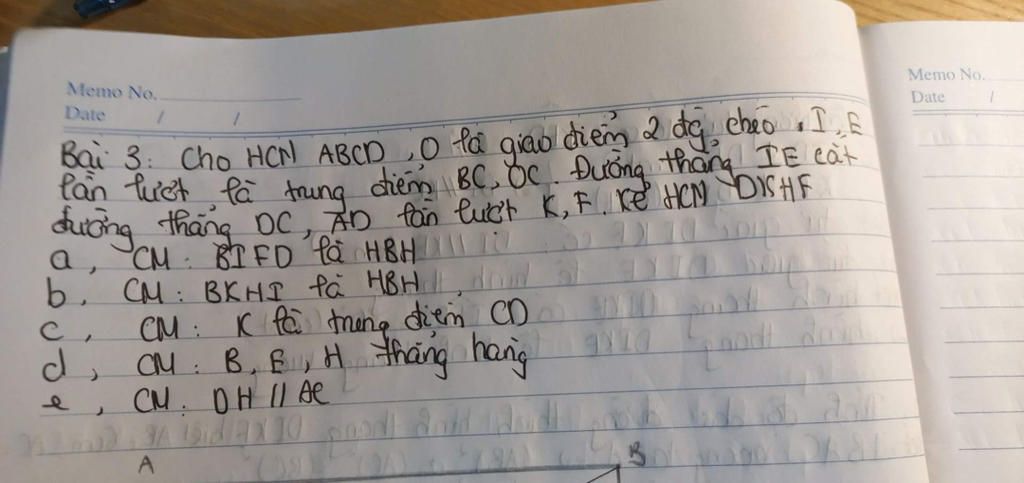 Memo No.
Date / /
Bài 3: Cho HCN ABCD, O là giao điểm 2 đg chéo. I, E
lần lượt là trung điểm BC, OC Đường thẳng IE cắt
đường thẳng DC, AD lần lượt K, F. Kẻ HCN DKHF
a, CM: BIFD là HBH
b, CM: BKHI là HBH
c, CM: K là trung điểm CD
d, CM: B, E, H thẳng hàng
e, CM: DH // AC
A B
Memo No.
Date /